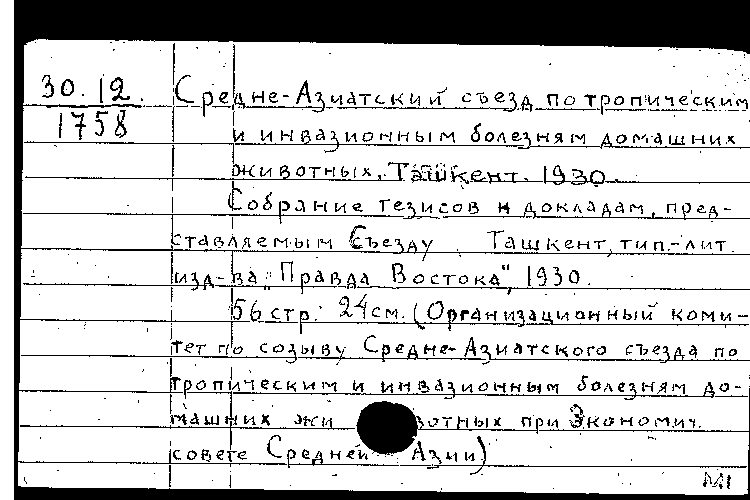 30.12.
1758
Средне-Азиатский съезд по тропическим
и инвазионным болезням домашних
животных. Ташкент. 1930.
Собрание тезисов к докладам, пред-
ставляемым Съезду. Ташкент, тип.-лит.
изд-ва „Правда Востока", 1930.
56 стр. 24 см. (Организационный коми-
тет по созыву Средне-Азиатского съезда по
тропическим и инвазионным болезням до-
машних жи вотных при Экономич.
совете Средней Азии)